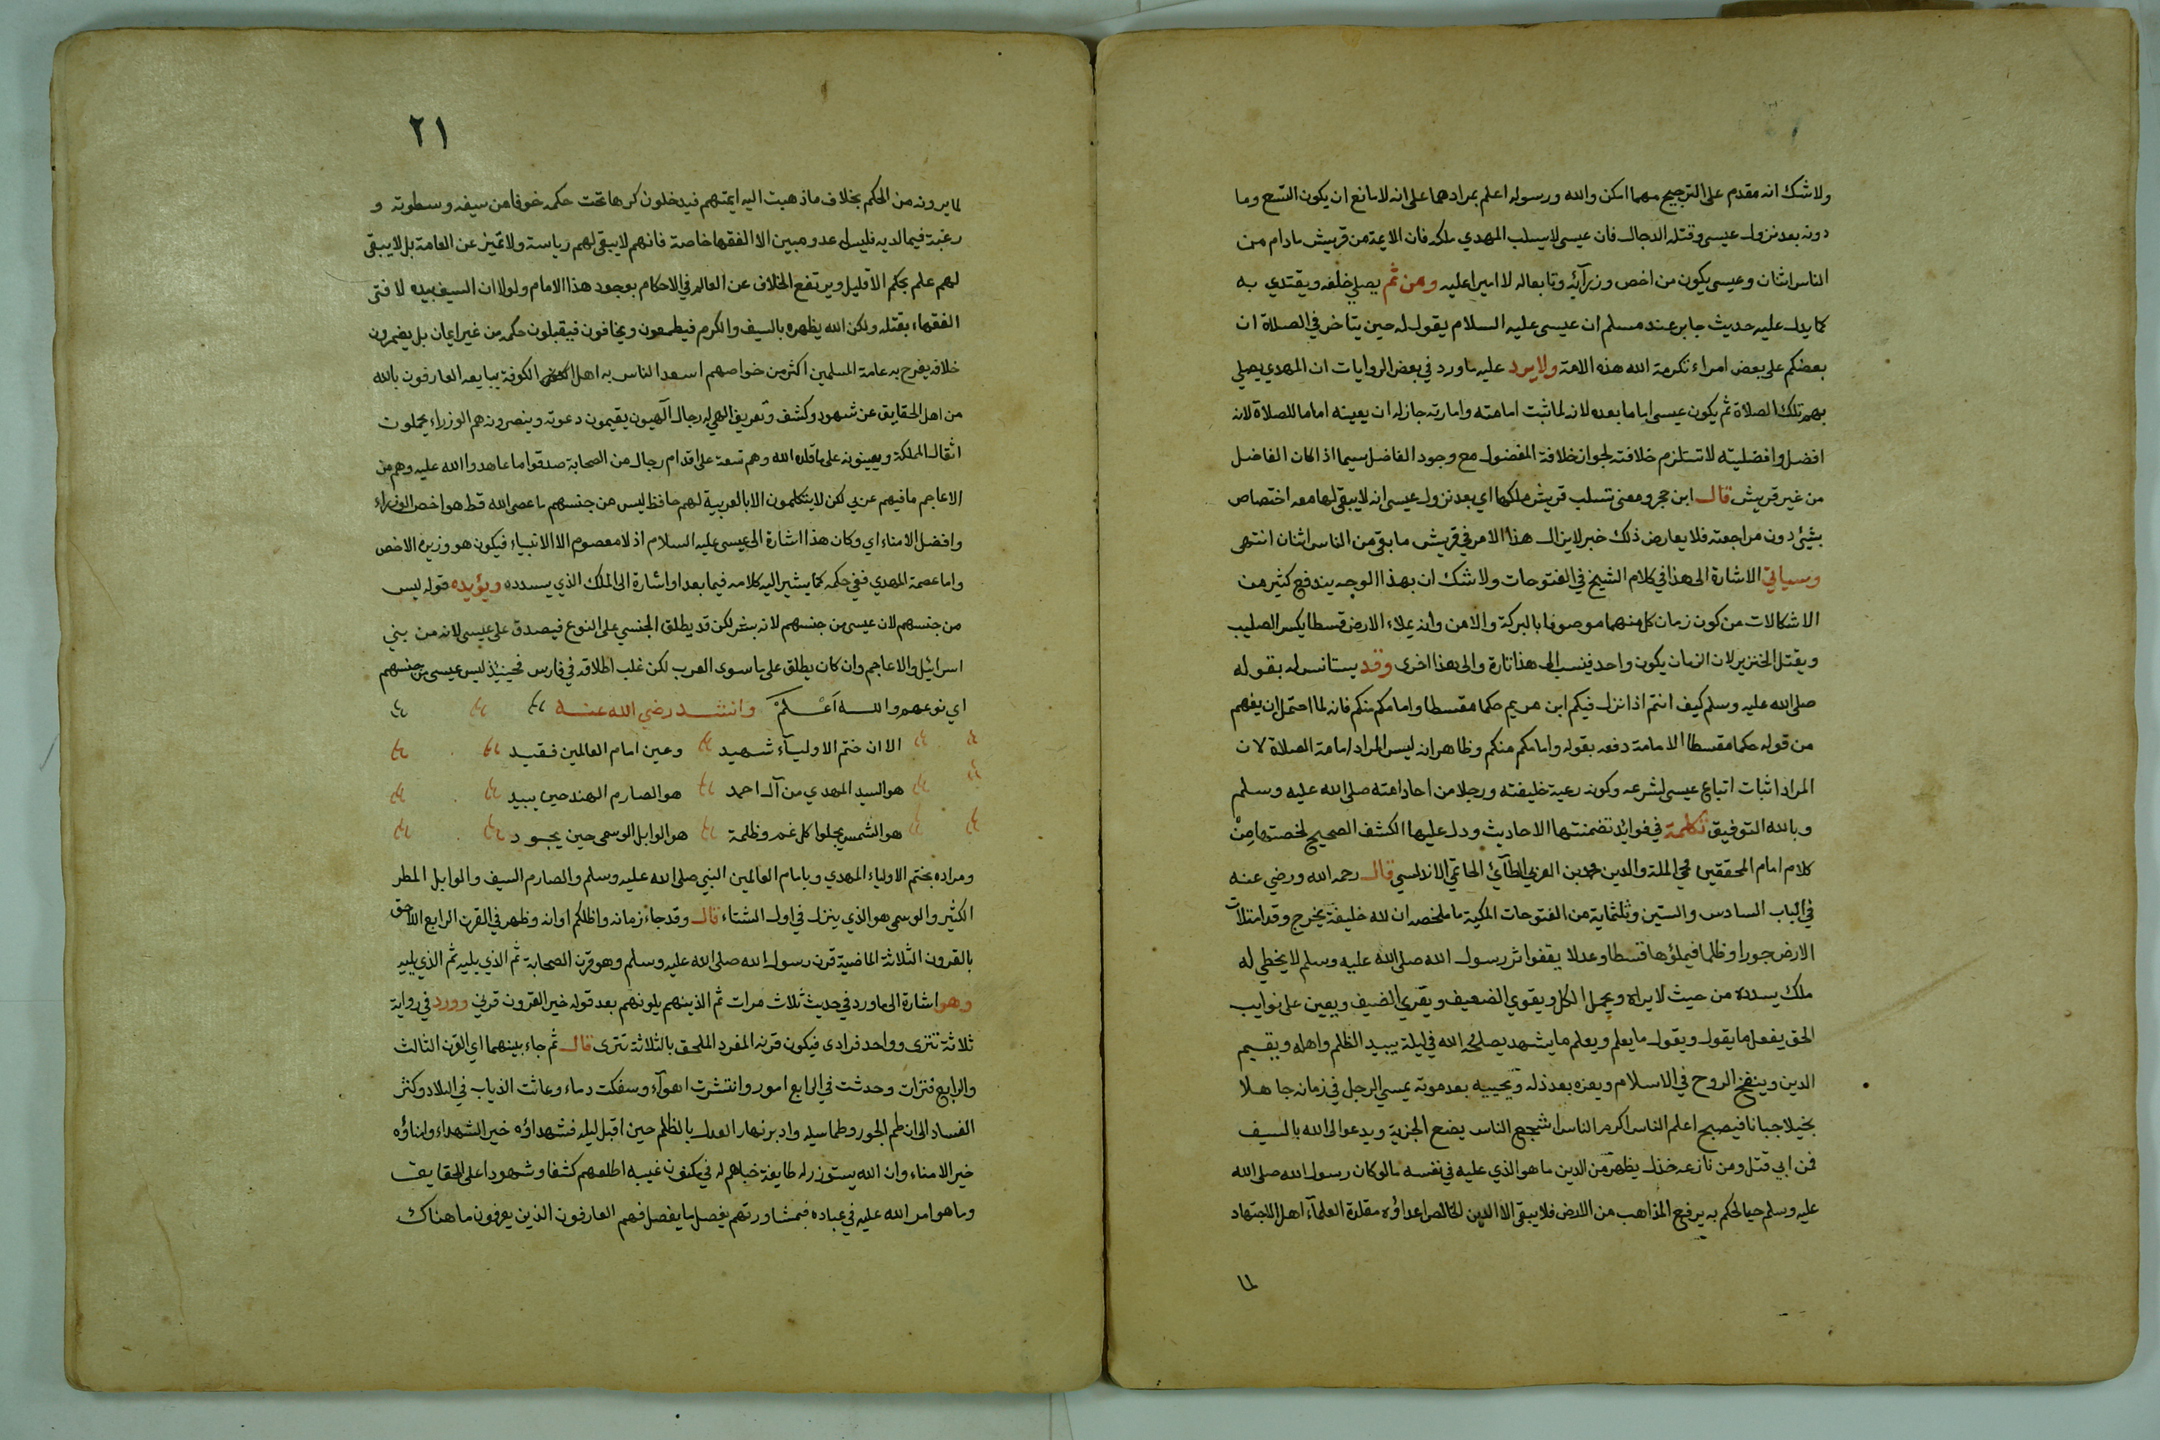 ولاشك انه مقدم على الترجيح مهما امكن والله ورسوله اعلم بمرادهما على انه لامانع ان يكون التسع وما
دونه بعد نزول عيسى وقتله الدجال فان عيسى لا يسلب المهدي ملكه فان الايمة من قريش مادام من
الناس اثنان وعيسى يكون من اخص وزرآئه وتابعاله لا اميرا عليه ومن ثم يصلي خلفه ويقتدي به
كما يدل عليه حديث جابر عند مسلم ان عيسى عليه السلام يقول له حين يتاخر في الصلاة ان
بعضكم على بعض امراء تكرمة الله هذه الامة ولا يرد عليه ماورد في بعض الروايات ان المهدي يصلي
بهم تلك الصلاة ثم يكون عيسى اماما بعده لانه لما ثبت امامته وامارته جاز له ان يعينه اماما للصلاة لانه
افضل وافضليته لا تستلزم خلافته لجواز خلافة المفضول مع وجود الفاضل سيما اذا كان الفاضل
من غير قريش قال ابن حجر ومعنى تسلب قريش ملكها اي بعد نزول عيسى انه لا يبقى لها معه اختصاص
بشئ دون مراجعته فلا يعارض ذلك خبر لا يزال هذا الامر في قريش ما بقي من الناس اثنان انتهى
وسياتي الاشارة الى هذا في كلام الشيخ في الفتوحات ولا شك ان بهذا الوجه يندفع كثير من
الاشكالات من كون زمان كل منهما موصوفا بالبركة والامن وانه يملاء الارض قسطا يكسر الصليب
ويقتل الخنزير لان الزمان يكون واحد فينسب الى هذا تارة والى هذا اخرى وقد يستانس له بقوله
صلى الله عليه وسلم كيف انتم اذا نزل فيكم ابن مريم حكما مقسطا وامامكم منكم فانه لما احتمل ان يفهم
من قوله حكما مقسطا الامامة دفعه بقوله وامامكم منكم وظاهر انه ليس المراد امامة الصلاة لان
المراد اثبات اتباع عيسى لشرعه وكونه رعية خليفته ورجلا من احاد امته صلى الله عليه وسلم
وبالله التوفيق تكملة في فوائد تضمنتها الاحاديث ودل عليها الكشف الصحيح لخصتها من
كلام امام المحققين محي الملة والدين محمد بن العربي الطآئي الحاتمي الاندلسي قال رحمه الله ورضي عنه
في الباب السادس والستين وثلثماية من الفتوحات المكية ما ملخصه ان لله خليفة يخرج وقد امتلات
الارض جورا وظلما فيملؤها قسطا وعدلا يقفوا اثر رسول الله صلى الله عليه وسلم لا يخطي له
ملك يسدده من حيث لا يراه ويحمل الكل ويقوي الضعيف ويقري الضيف ويعين على نوايب
الحق يفعل ما يقول ويقول ما يعلم ويعلم ما يشهد يصلحه الله في ليلة يبيد الظلم واهله ويقيم
الدين وينفخ الروح في الاسلام ويعزه بعد ذله ويحييه بعد موته يمسي الرجل في زمانه جاهلا
بخيلا جبانا فيصبح اعلم الناس اكرم الناس اشجع الناس يضع الجزية ويدعو الى الله بالسيف
فمن ابي قتل ومن نازعه خذل يظهر من الدين ما هو الذي عليه في نفسه مالو كان رسول الله صلى الله
عليه وسلم حيا لحكم به يرفع المذاهب من الارض فلا يبقى الا الدين الخالص اعداؤه مقلدة العلمآء اهل الاجتهاد
لما
٢١
لما يرونه من الحكم بخلاف ماذهبت اليه ايمتهم فيدخلون كرها تحت حكمه خوفا من سيفه وسطوته و
رغبة فيما لديه فليس له عدو مبين الا الفقها خاصة فانهم لا يبقى لهم رياسة ولا تميز عن العامة بل لا يبقى
لهم علم بحكم الا قليل ويرتفع الخلاف عن العالم في الاحكام بوجود هذا الامام ولولا ان السيف بيده لا فتى
الفقهاء بقتله ولكن الله يظهره بالسيف والكرم فيطمعون ويخافون فيقبلون حكمه من غير ايمان بل يضمرون
خلافه يفرح به عامة المسلمين اكثر من خواصهم اسعد الناس به اهل الكوفة يبايعه العارفون بالله
من اهل الحقايق عن شهود وكشف وتعريف الهي له رجال آلهيون يقيمون دعوته وينصرونه هم الوزراء يحملون
اثقال المملكة ويعينونه على ما قلده الله وهم تسعة على اقدام رجال من الصحابة صدقوا ما عاهدوا الله عليه وهم من
الاعاجم ما فيهم عربي لكن لا يتكلمون الا بالعربية لهم حافظ ليس من جنسهم ما عصى الله قط هو اخص الوزراء
وافضل الامناء اي وكان هذا اشارة الى عيسى عليه السلام اذ لا معصوم الا الانبياء فيكون هو وزيره الاخص
واما عصمة المهدي ففي حكمه كما يشير اليه كلامه فيما بعد او اشارة الى الملك الذي يسدده ويؤيده قوله ليس
من جنسهم لان عيسى من جنسهم لانه بشر لكن قد يطلق الجنسي على النوع فيصدق على عيسى لانه من بني
اسرائيل والاعاجم وان كان يطلق على ما سوى العرب لكن غلب اطلاقه في فارس فحينئذ ليس عيسى من جنسهم
اي نوعهم والله اعلم وانشد رضي الله عنه
الا ان ختم الاولياء شهيد وعين امام العالمين فقيد
هو السيد المهدي من آل احمد هو الصارم الهندحين يبيد
هو الشمس يجلوا كل غم وظلمة هو الوابل الوسمي حين يجود
ومراده بختم الاولياء المهدي وبامام العالمين النبي صلى الله عليه وسلم والصارم السيف والوابل المطر
الكثير والوسمي هو الذي ينزل في اول الشتاء قال وقد جاء زمانه واظلكم اوانه وظهر في القرن الرابع اللاحق
بالقرون الثلاثة الماضية قرن رسول الله صلى الله عليه وسلم وهو قرن الصحابة ثم الذي يليه ثم الذي يليه
وهو اشارة الى ماورد في حديث ثلاث مرات ثم الذينهم يلونهم بعد قوله خير القرون قرني وورد في رواية
ثلاثة تترى وواحد فرادى فيكون قرنه المفرد الملحق بالثلاثة تترى قال ثم جاء بينهما اي القرن الثالث
والرابع فترات وحدثت في الرابع امور وانتشرت اهوآء وسفكت دماء وعاثت الذياب في البلاد وكثر
الفساد الى ان طم الجور وطما سيله وادبر نهار العدل بالظلم حين اقبل ليله فشهداؤه خير الشهداء وامناؤه
خير الامناء وان الله يستوزر له طايفة خباهم له في مكنون غيبه اطلعهم كشفا وشهودا على الحقايق
وما هو امر الله عليه في عباده فبمشاورتهم يفصل ما يفصل فهم العارفون الذين يعرفون ما هناك